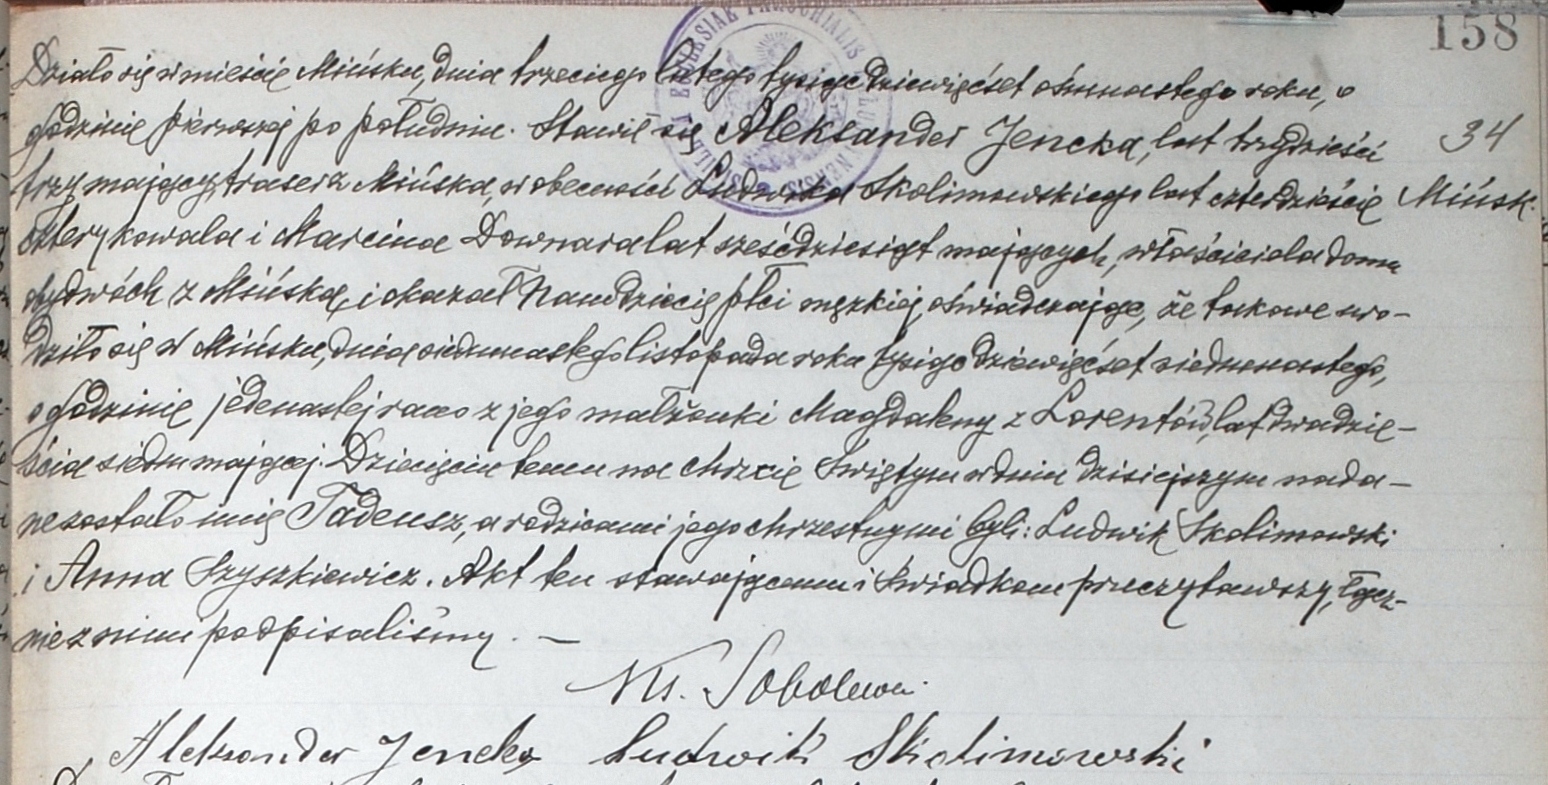 158
Działo się w mieście Mińsku, dnia trzeciego lutego tysiąc dziewięćset ośmnastego roku, o
godzinie pierwszej po południu. Stawił się Aleksander Jencka, lat trzydzieści
34
trzy mający, tracz z Mińska, w obecności Ludwika Skolimowskiego lat czterdzieście
Mińsk.
cztery kowala i Marcina Downara lat sześćdziesiąt mających, właściciela domu
obydwóch z Mińska, i okazał Nam dziecię płci męzkiej, oświadczając, że takowe uro-
dziło się w Mińsku, dnia siedmnastego listopada roku tysiąc dziewięćset siedmnastego,
o godzinie jedenastej rano z jego małżonki Magdaleny z Lorentów, lat dwadzie-
ścia siedm mającej. Dziecięciu temu na chrzcie Świętym w dniu dzisiejszym nada-
ne zostało imię Tadeusz, a rodzicami jego chrzestnymi byli: Ludwik Skolimowski
i Anna Szyszkiewicz. Akt ten stawającemu i świadkom przeczytawszy, łącz-
nie z nimi podpisaliśmy. —
Ks. Sobolew
Aleksander Jencka Ludwik Skolimowski